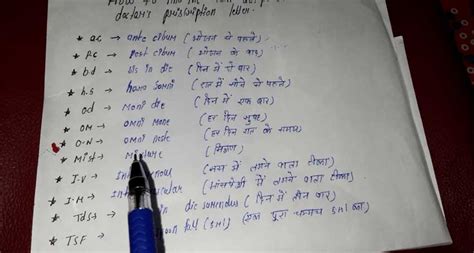 doctor's prisisription letter.
* ac → ante cibum (भोजन से पहले)
* Pc → Post cibum (भोजन के बाद)
* bd → bis in die (दिन में दो बार)
* h.s → hora somni (रात में सोने से पहले)
* od → Moni die (दिन में एक बार)
* OM → omni mane (हर दिन सुबह)
* O.N → omni nocte (हर दिन रात के समय)
* Mist → (मिश्रण)
* I.V → (नस में लगने वाला टीका)
* I.M → (मांसपेशी में लगने वाला टीका)
* Tds → in die (दिन में तीन बार)
* TSF → full (5ml) (एक पूरा चम्मच 5ml का)